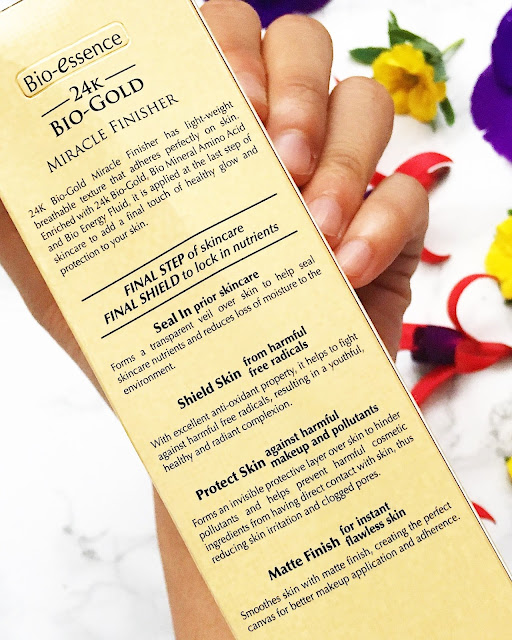 Bio-essence
24K
BIO-GOLD
MIRACLE FINISHER
24K Bio-Gold Miracle Finisher has light-weight
breathable texture that adheres perfectly on skin.
Enriched with 24k Bio-Gold, Bio Mineral Amino Acid
and Bio Energy Fluid, it is applied at the last step of
skincare to add a final touch of healthy glow and
protection to your skin.
FINAL STEP of skincare
FINAL SHIELD to lock in nutrients
Seal In prior skincare
Forms a transparent veil over skin to help seal
skincare nutrients and reduces loss of moisture to the
environment.
Shield Skin from harmful
free radicals
With excellent anti-oxidant property, it helps to fight
against harmful free radicals, resulting in a youthful,
healthy and radiant complexion.
Protect Skin against harmful
makeup and pollutants
Forms an invisible protective layer over skin to hinder
pollutants and helps prevent harmful cosmetic
ingredients from having direct contact with skin, thus
reducing skin irritation and clogged pores.
Matte Finish for instant
flawless skin
Smoothes skin with matte finish, creating the perfect
canvas for better makeup application and adherence.